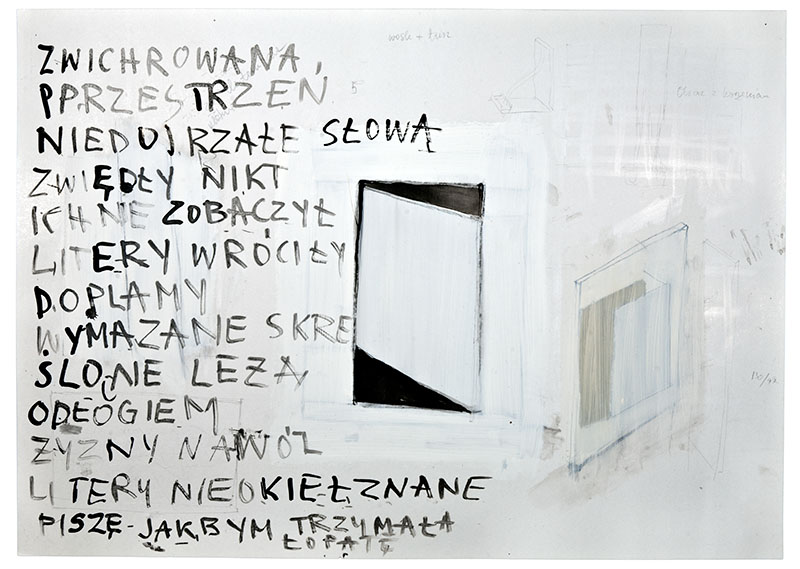 ZWICHROWANA,
PPRZESTRZEŃ
NIEDOJRZAŁE SŁOWA
ZWIĘDŁY NIKT
ICH NIE ZOBACZYŁ
LITERY WRÓCIŁY
DO PLAMY
WYMAZANE SKRE
ŚLONE LEŻĄ
ODŁOGIEM
ŻYZNY NAWÓZ
LITERY NIEOKIEŁZNANE
PISZĘ JAKBYM TRZYMAŁA
ŁOPATĘ
wosk + tusz
5